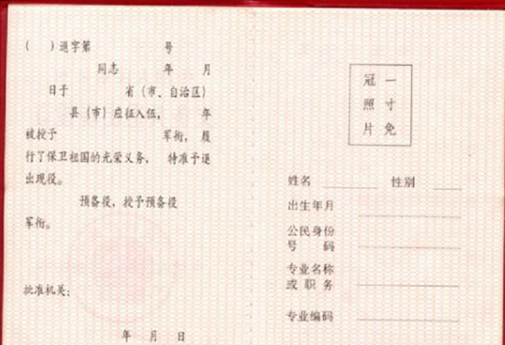 （ ）退字第 号
同志 年 月
日于 省（市、自治区）
县（市）应征入伍， 年
被授予 军衔，履
行了保卫祖国的光荣义务， 特准予退
出现役。
预备役，授予预备役
军衔。
批准机关：
年 月 日
冠 一
照 寸
片 免
姓名 性别
出生年月
公民身份
号 码
专业名称
或 职 务
专业编码